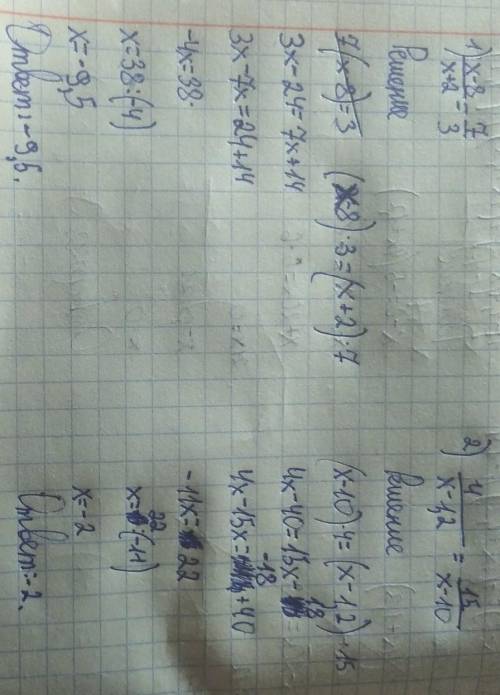 1) x-8/x+2 = 7/3
Решение
7(x-8)=3 (x-8)·3=(x+2)·7
3x-24=7x+14
3x-7x=24+14
-4x=38
x=38:(-4)
x=-9,5
Ответ: -9,5.
2) 4/x-1,2 = 15/x-10
Решение
(x-10)·4=(x-1,2)·15
4x-40=15x-18
4x-15x=-18+40
-11x=22
x=22(-11)
x=-2
Ответ:-2.